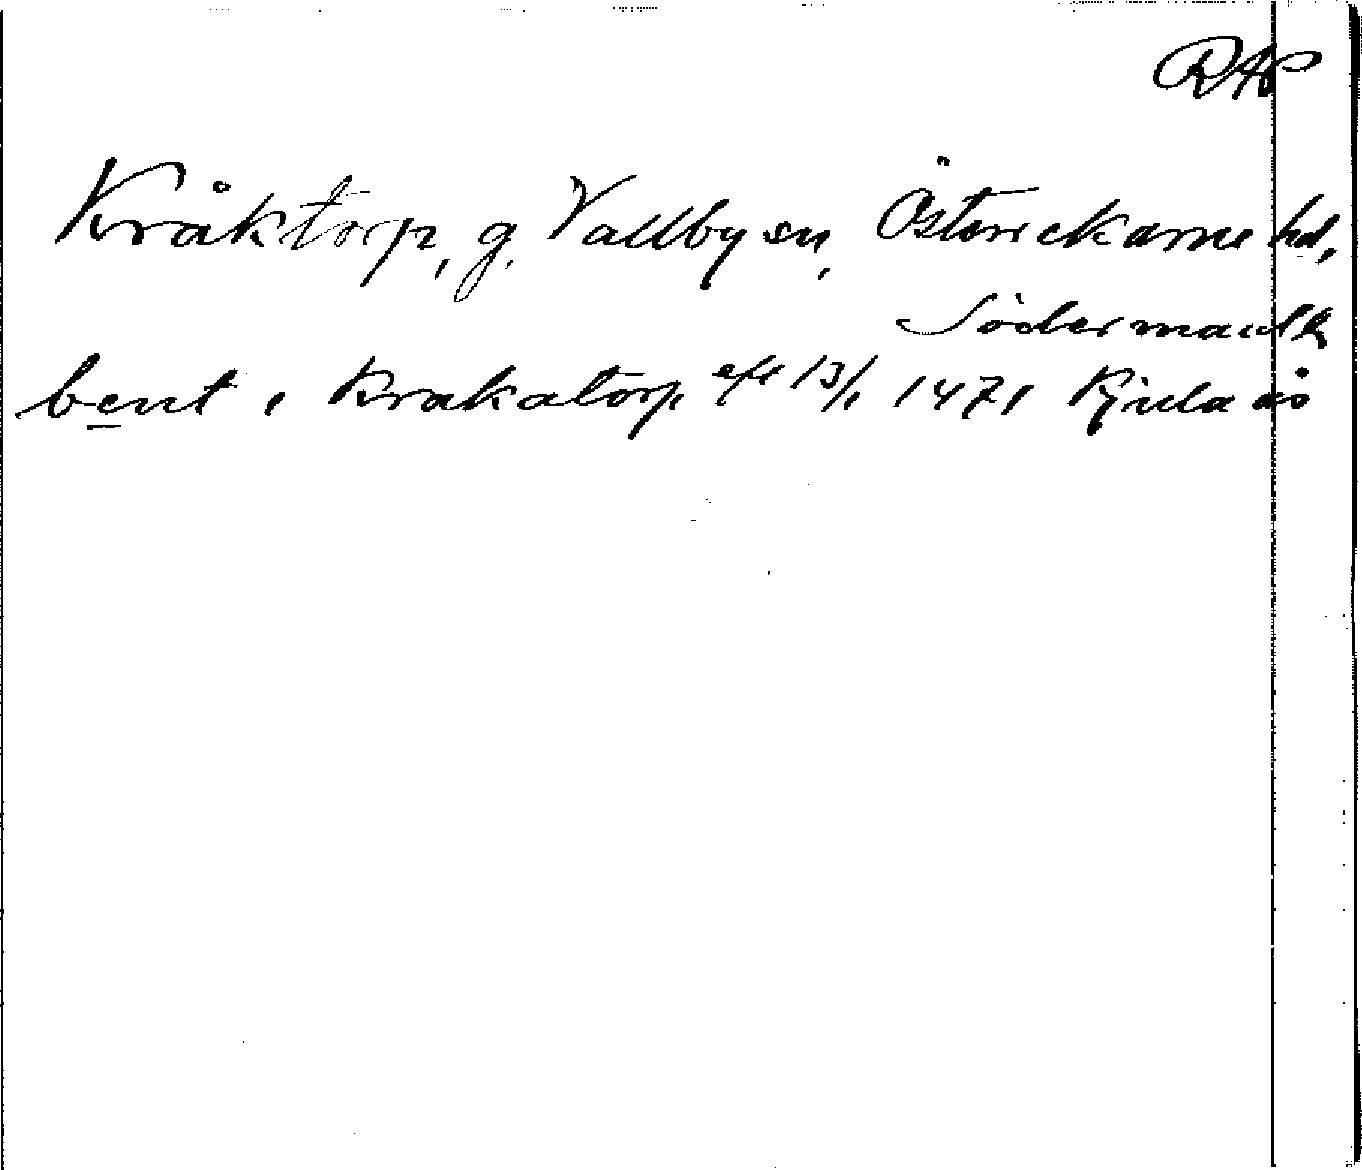 RAP
Kråktorp, g. Vallby sn, Österrekarne hd,
Södermanl.
bent i Krakatorp eft 13/1 1471 Kjula ås